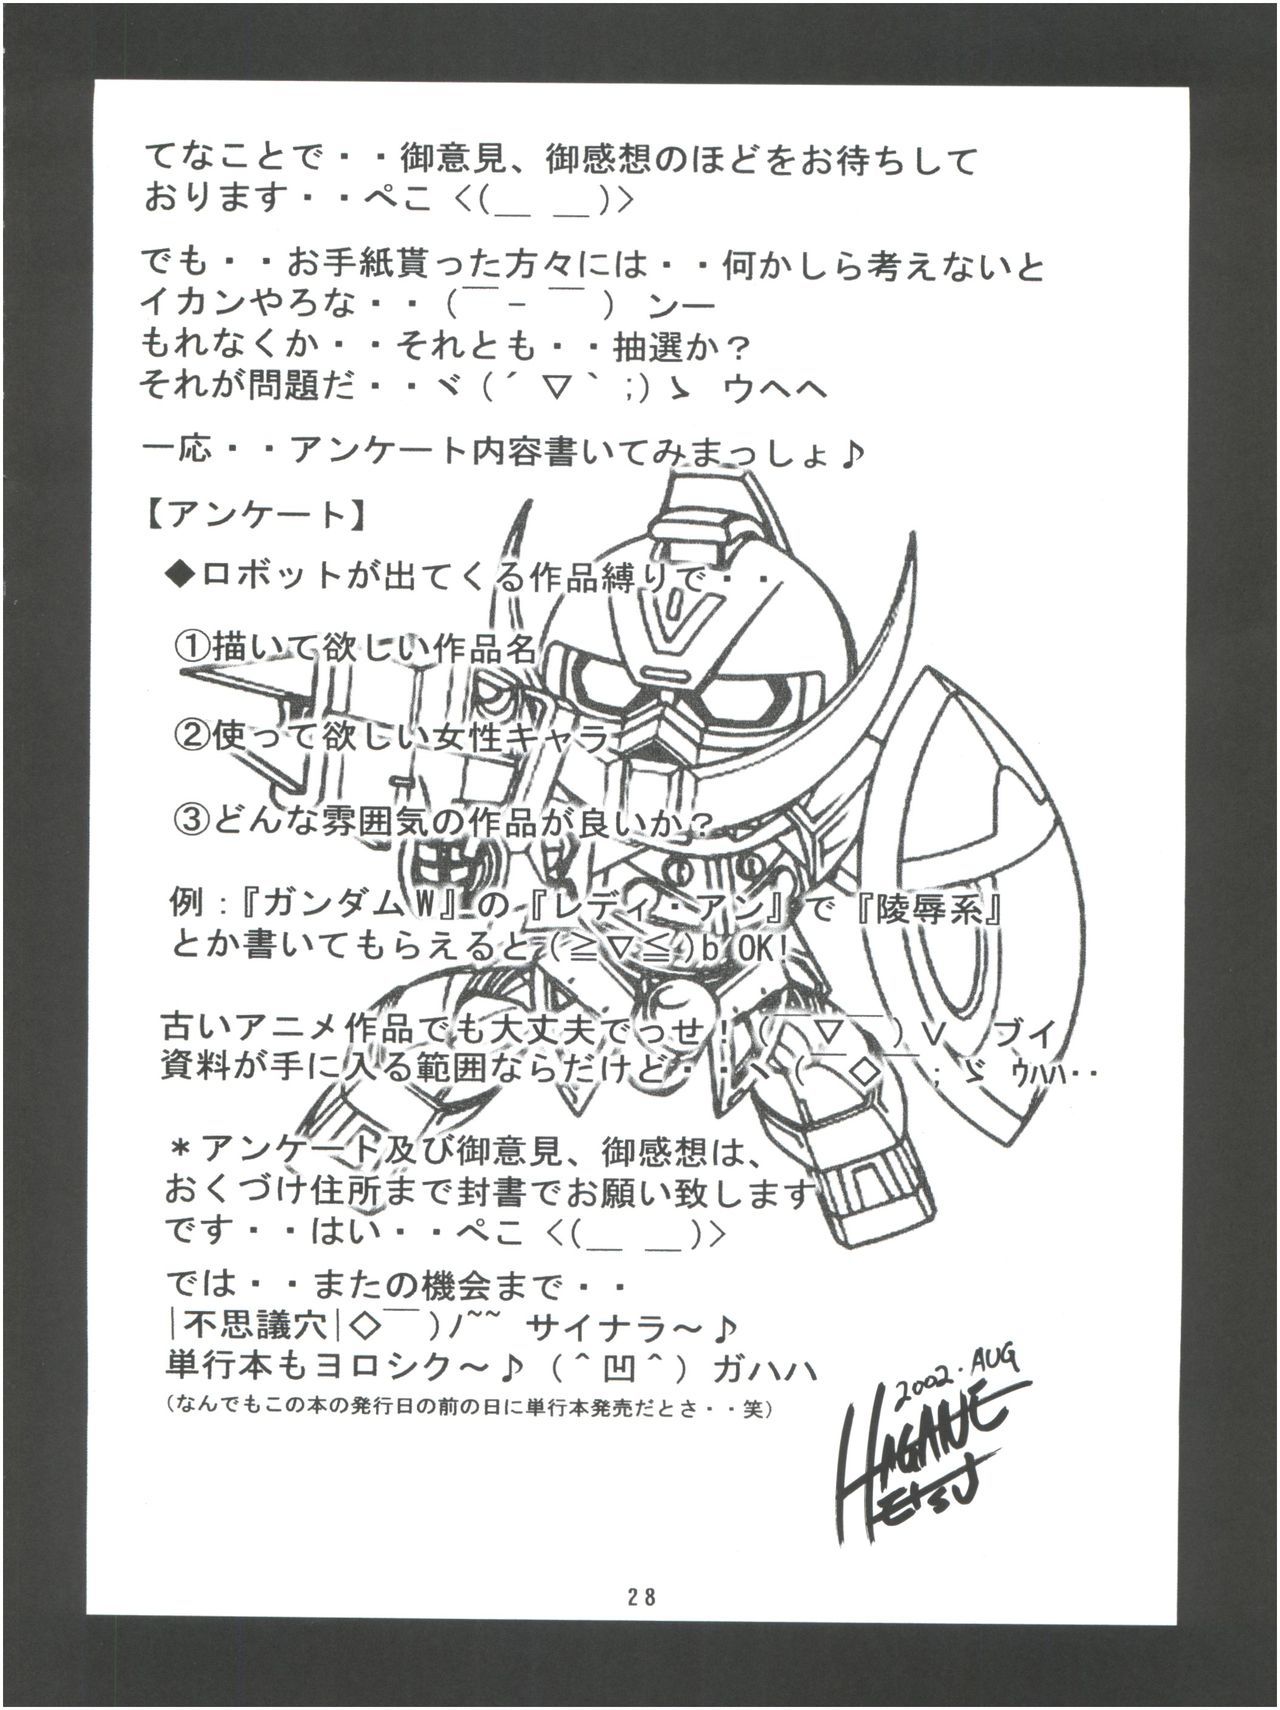 てなことで・・御意見、御感想のほどをお待ちして
おります・・ぺこ <(__ __)>
でも・・お手紙貰った方々には・・何かしら考えないと
イカンやろな・・(￣- ￣) ンー
もれなくか・・それとも・・抽選か？
それが問題だ・・ヾ(´▽｀;)ゝ ウヘヘ
一応・・アンケート内容書いてみまっしょ♪
【アンケート】
◆ロボットが出てくる作品縛りで・・
①描いて欲しい作品名
②使って欲しい女性キャラ
③どんな雰囲気の作品が良いか？
例：『ガンダムW』の『レディ・アン』で『陵辱系』
とか書いてもらえると(≧▽≦)b OK!
古いアニメ作品でも大丈夫でっせ！(￣▽￣)Ｖ ブイ
資料が手に入る範囲ならだけど・・ヽ(￣◇￣;ゞ ｳﾊﾊ・・
＊アンケート及び御意見、御感想は、
おくづけ住所まで封書でお願い致します
です・・はい・・ぺこ <(__ __)>
では・・またの機会まで・・
|不思議穴|◇￣)ﾉ~~ サイナラ～♪
単行本もヨロシク～♪(＾凹＾) ガハハ
(なんでもこの本の発行日の前の日に単行本発売だとさ・・笑)
2002.AUG
HAGANE
TETSU
28